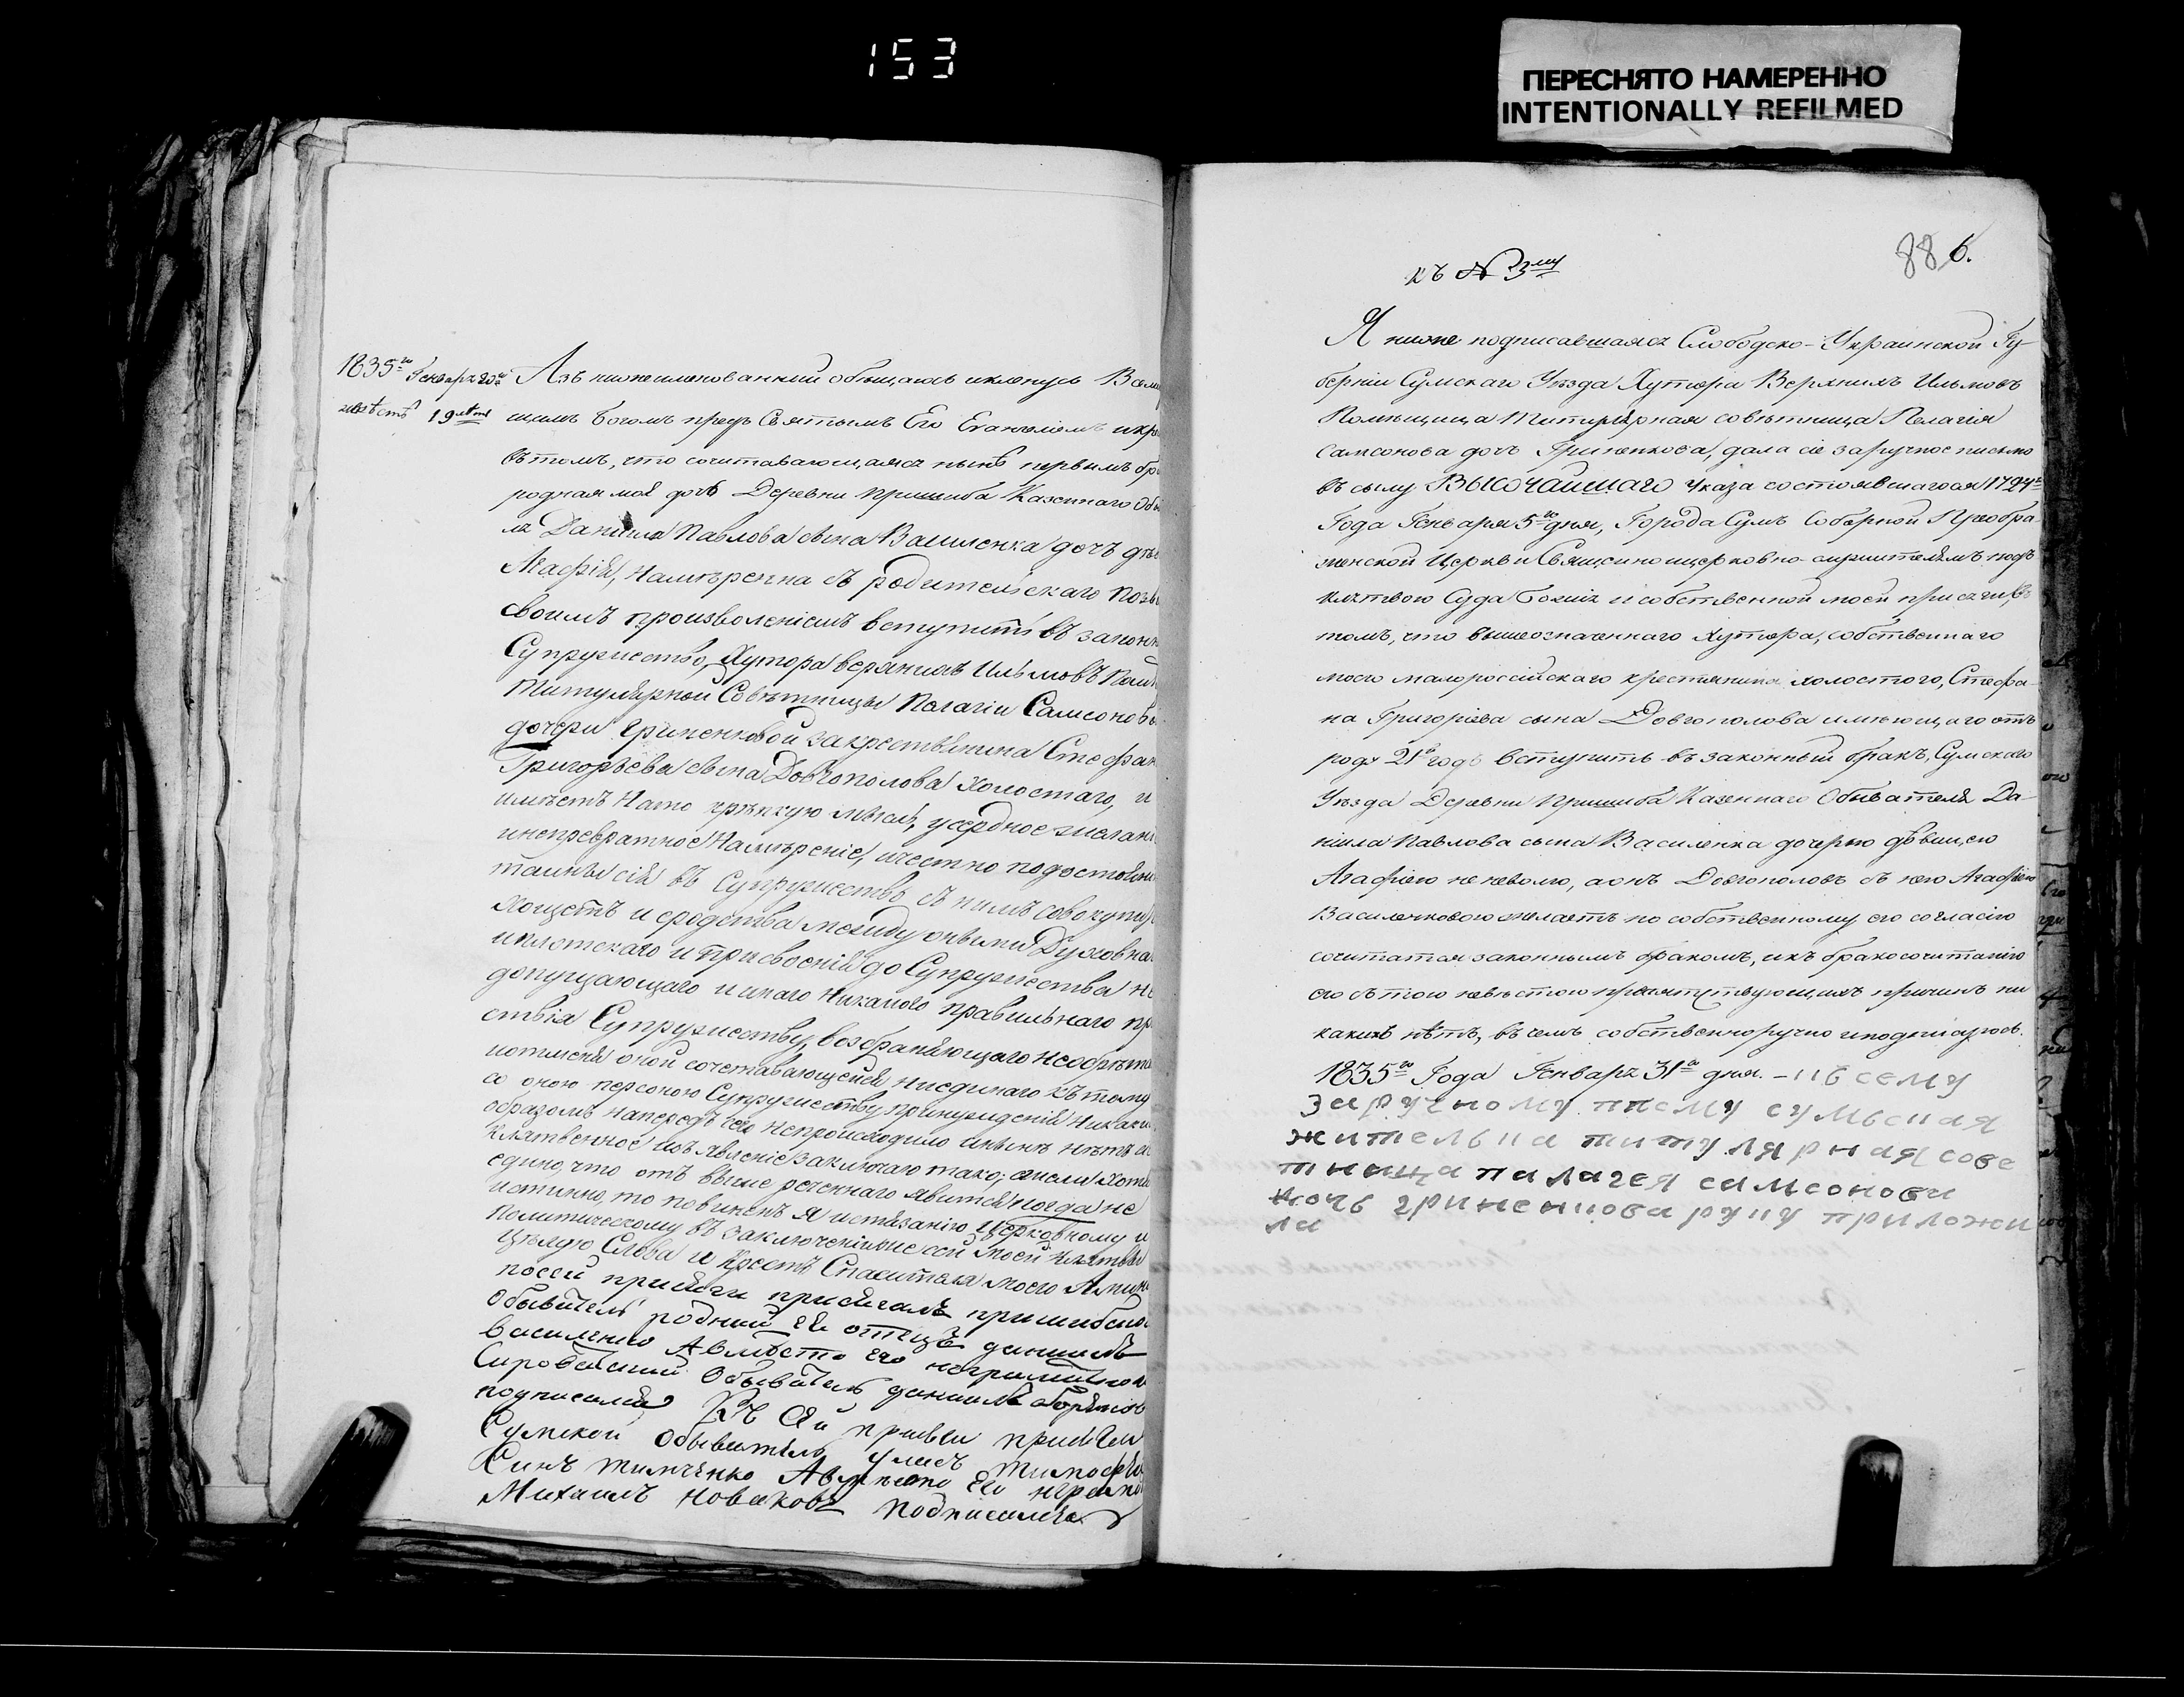 153
ПЕРЕСНЯТО НАМЕРЕННО
INTENTIONALLY REFILMED
1835го Генваря 20
невѣстѣ 19 лѣтъ
Азъ нижеименованный обѣщаюсь и кленусь Всемо
щимъ Богомъ предъ Святымъ Его Евангелiемъ и кре
въ томъ, что сочитавающаяся нынѣ первымъ бра
родная моя дочь Деревни Пришиба Казеннаго Обы
ля Данiила Павлова сына Василенка дочь дѣв
Агафiя, намѣренна съ родительскаго позв
своимъ произволенiемъ вступить въ законн
Супружество, Хутора верхнихъ Ильмовъ Пом
Титулярной Совѣтницы Пелагiи Самсоновы
дочери Гриненковой за крестьянина Стефан
Григорьева сына Довгополова холостаго, и
имѣетъ на то крѣпкую мысль, усердное желанi
и непревратное намѣренiе, и честно по достоин
таины сiя въ Супружествѣ съ нимъ совокупит
хощетъ и сродства между оными Духовна
и плотскаго и присвоенiя до Супружества не
допущающаго и инаго никакого правильнаго пр
ствiя Супружеству возбраняющаго не обрѣта
и от меня оной сочетавающейся ниединаго къ тому
со оною персоною Супружеству принужденiя никаки
образомъ напередъ сего непроисходило и нынѣ нѣтъ и
клятвенное изъявленiе заключаю тако; ежели хотя
едино, что отъ выше реченнаго явится когда не
истинно, то повиненъ я истязанiю Церковному и
Политическому въ заключенiи же сей моей клятвы
Цѣлую Слова и Крестъ Спасителя моего Аминь
по сей присяги присягалъ пришибско
Обыватель родний ея отецъ данiилъ
василенко Авмѣсто его неграмотно
Сироватский Обыватель данiилъ
подписался Къ сей присяги
Сумской Обыватель
Синъ тимченко Авмѣсто его неграмо
Михаилъ Новаковъ подписался
къ № 3му
88 6.
Я ниже подписавшаяся Слободско-Украинской Гу
бернiи Сумскаго Уѣзда Хутора Верхнихъ Ильмовъ
Помѣщица Титулярная совѣтница Пелагiя
Самсонова дочь Гриненкова, дала сiе заручное письмо
въ силу Высочайшаго Указа состоявшагося 1724го
Года Генваря 5го дня, Города Сумъ Соборной Преобра
женской Церкви Священноцерковно-служителямъ подъ
клятвою Суда Божiя и собственной моей присяги, въ
томъ, что вышеозначеннаго Хутора, собственнаго
моего малороссiйскаго крестьянина холостого, Стефа-
на Григорiева сына Довгополова имѣющаго отъ
роду 21 годъ вступить въ законный бракъ, Сумскаго
Уѣзда Деревни Пришиба Казеннаго Обывателя Да-
нiила Павлова сына Василенка дочерью дѣвицею
Агафiею не неволю, а онъ Довгополовъ съ нею Агафiею
Василенковою желаетъ по собственному его согласiю
сочитатся законнымъ бракомъ, и къ бракосочитанiю
его съ тою невѣстою препятствующихъ причинъ ни
какихъ нѣтъ, въ чемъ собственноручно и подпишусь.
1835го Года Генваря 31го дня. - къ сему
заручному писму сумьская
жителька титулярная сове
тница палагея самсонови
дочь гриненкова руку приложи
ла